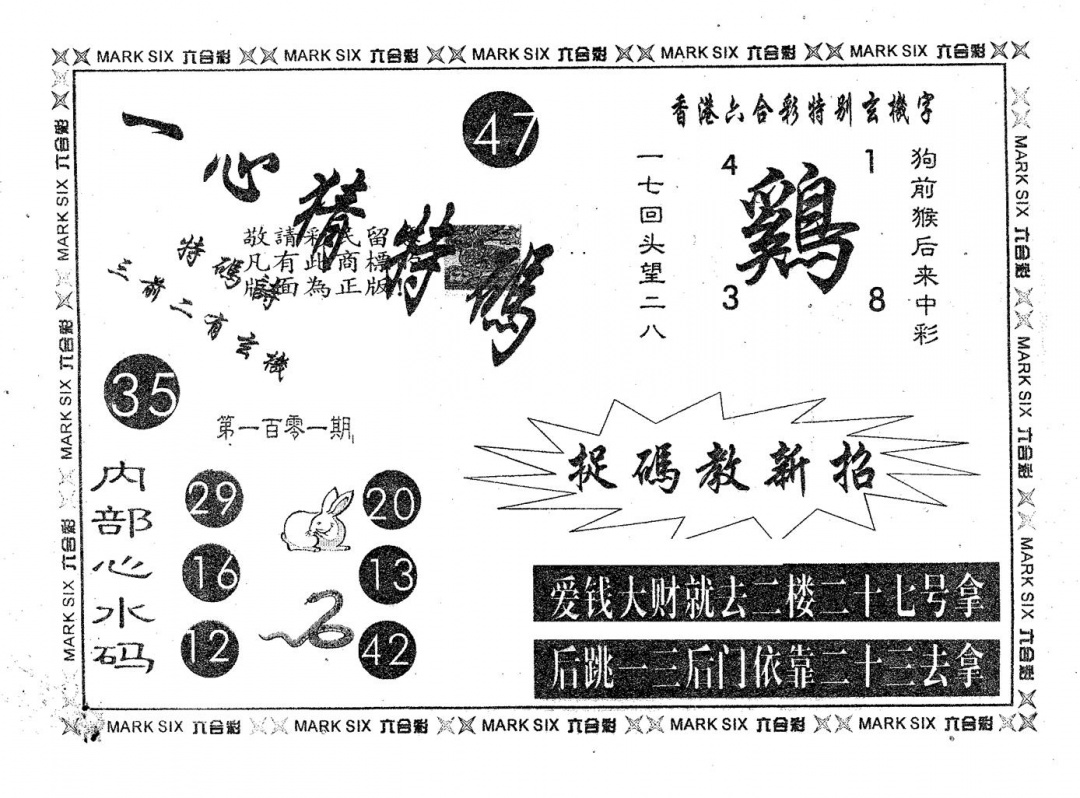 MARK SIX 六合彩 MARK SIX 六合彩 MARK SIX 六合彩 MARK SIX 六合彩 MARK SIX 六合彩
一心猜特碼
47
香港六合彩特别玄機字
一七回头望二八
4
1
鷄
3
8
狗前猴后来中彩
敬請彩民留
凡有此商標
版面為正版!
特碼詩
三前二有玄機
35
第一百零一期
捉碼教新招
内部心水码
29
20
16
13
12
42
爱钱大财就去二楼二十七号拿
后跳一三后门依靠二十三去拿
MARK SIX 六合彩 MARK SIX 六合彩 MARK SIX 六合彩
MARK SIX 六合彩 MARK SIX 六合彩 MARK SIX 六合彩
MARK SIX 六合彩 MARK SIX 六合彩 MARK SIX 六合彩 MARK SIX 六合彩 MARK SIX 六合彩